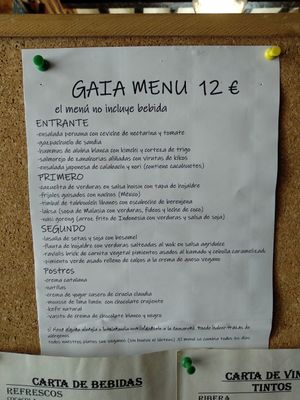 GAIA MENU 12 €
el menú no incluye bebida
ENTRANTE
-ensalada peruana con ceviche de nectarina y tomate
-gazpachuelo de sandia
-hummus de alubia blanca con kimchi y corteza de trigo
-salmorejo de zanahorias aliñadas con virutas de kikos
-ensalada japonesa de calabacín y nori (contiene cacahuetes)
PRIMERO
-cazuelita de verduras en salsa hoisin con tapa de hojaldre
-frijoles guisados con nachos (México)
-timbal de tabbouleh libanes con escabeche de berenjena
-laksa (sopa de Malasia con verduras, fideos y leche de coco)
-nasi goreng (arroz frito de Indonesia con verduras y salsa de soja)
SEGUNDO
-lasaña de setas y soja con besamel
-flauta de hojaldre con verduras salteadas al wok en salsa agridulce
-raviolis brick de carnita vegetal pimientos asados al kamado y cebolla caramelizada
-pimiento verde asado relleno de calçots a la crema de queso vegano
Postres
-crema catalana
-natillas
-crema de yogur casero de ciruela claudia
-mousse de lima limón con chocolate crujiente
-kefir natural
-vasito de crema de chocolate blanco y negro
Si tienes alguna alergia o intolerancia
alérgenos
todos nuestros platos son veganos (sin huevos ni lácteos). El menú se cambia todos los días
CARTA DE BEBIDAS
REFRESCOS
CARTA DE VIN
TINTOS
RIBERA